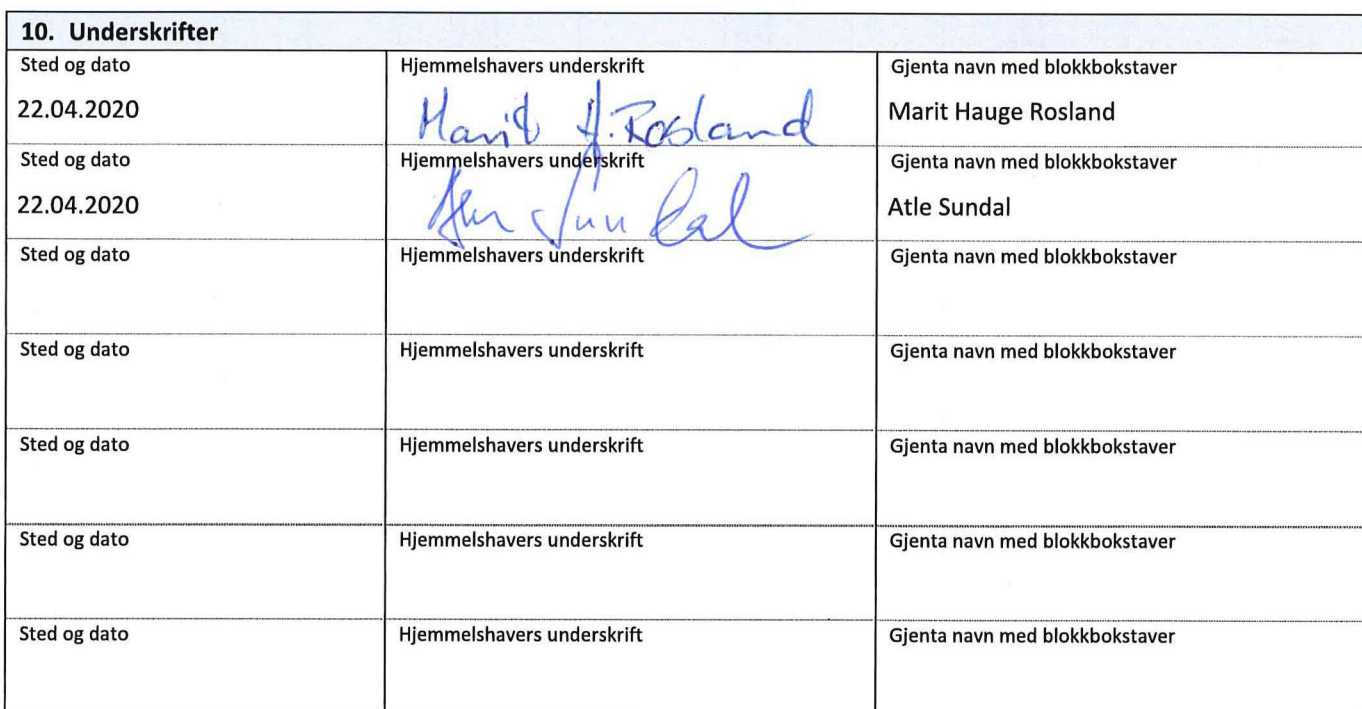 10. Underskrifter
Sted og dato Hjemmelshavers underskrift Gjenta navn med blokkbokstaver
22.04.2020 Marit H. Rosland Marit Hauge Rosland
Sted og dato Hjemmelshavers underskrift Gjenta navn med blokkbokstaver
22.04.2020 Atle Sundal Atle Sundal
Sted og dato Hjemmelshavers underskrift Gjenta navn med blokkbokstaver
Sted og dato Hjemmelshavers underskrift Gjenta navn med blokkbokstaver
Sted og dato Hjemmelshavers underskrift Gjenta navn med blokkbokstaver
Sted og dato Hjemmelshavers underskrift Gjenta navn med blokkbokstaver
Sted og dato Hjemmelshavers underskrift Gjenta navn med blokkbokstaver